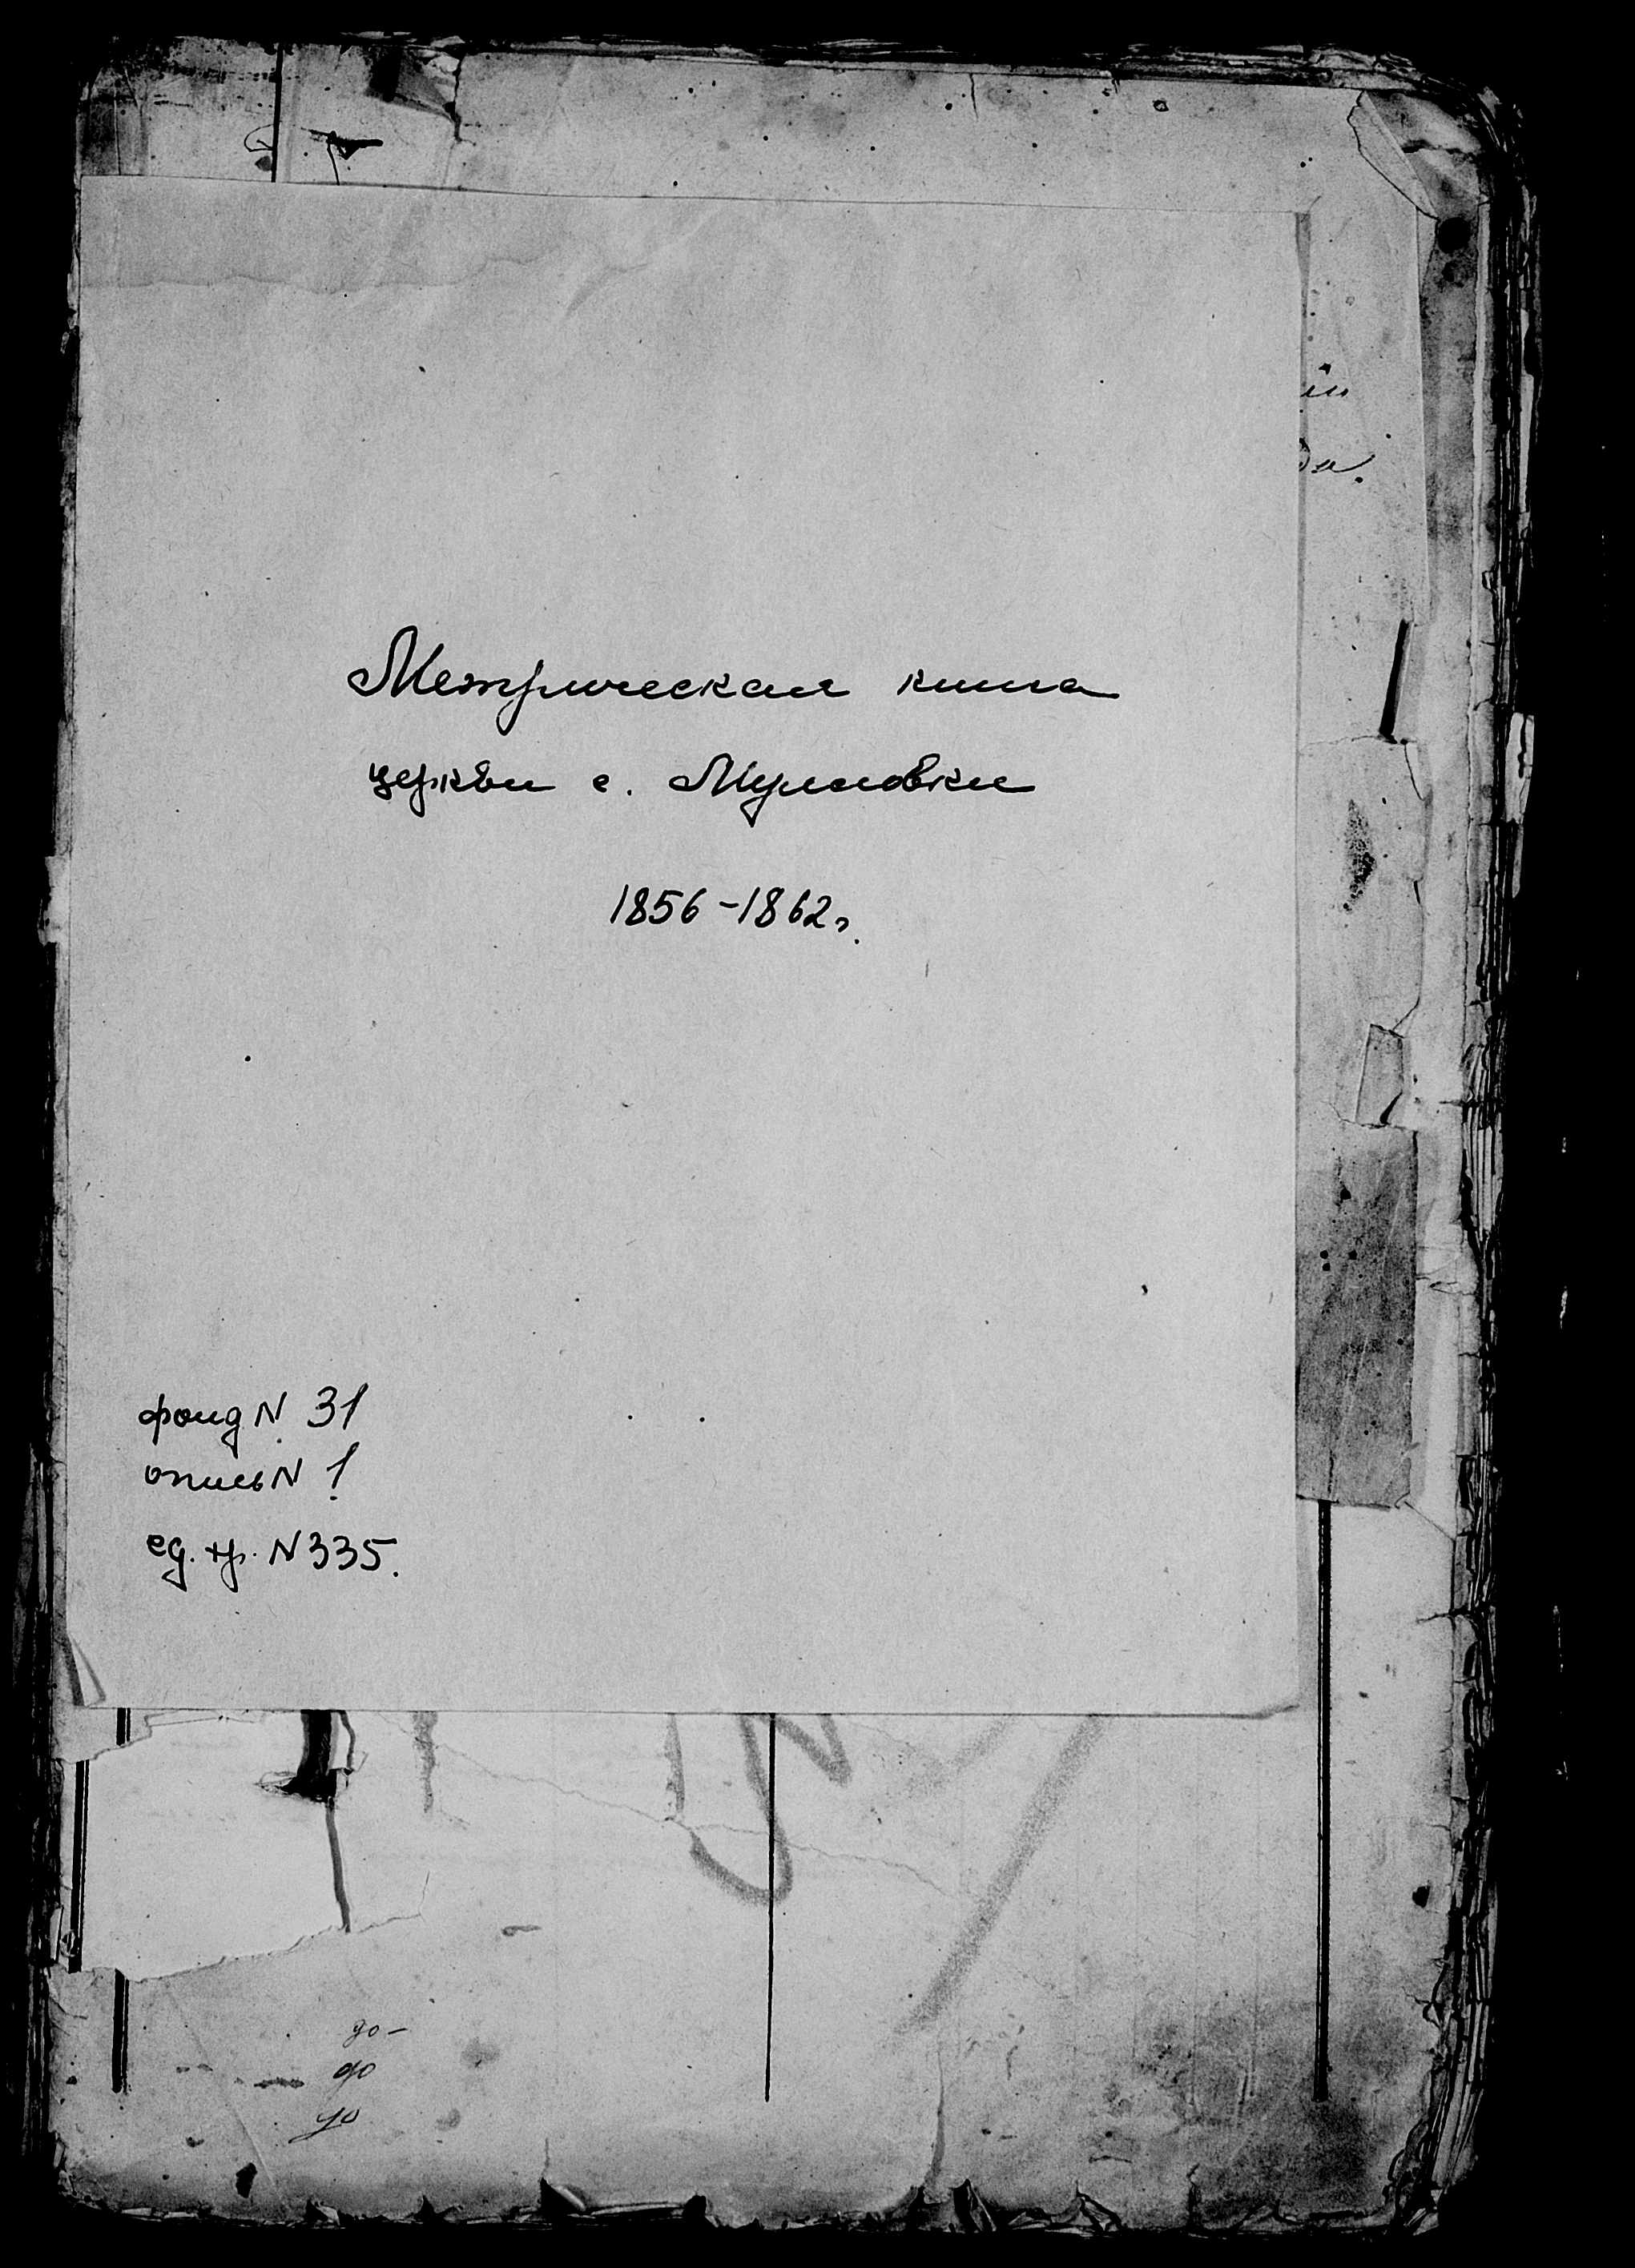 Метрическая книга
церкви с. Мулловки
1856-1862г.
фонд N 31
опись N 1
ед. хр. N 335.
до-
до
до